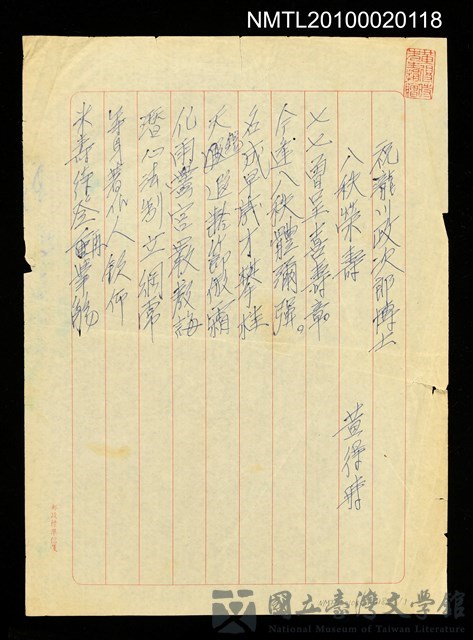 NMTL20100020118
祝瀧川政次郎博士
八秩榮壽
黃得時
七七曾呈喜壽章。
今逢八秩體彌強。
名成早歲才攀桂
化雨黌宮嚴教誨
潛心法制立綱常
等身著作人欽仰
米壽徐登再舉觴
國立臺灣文學館
National Museum of Taiwan Literature